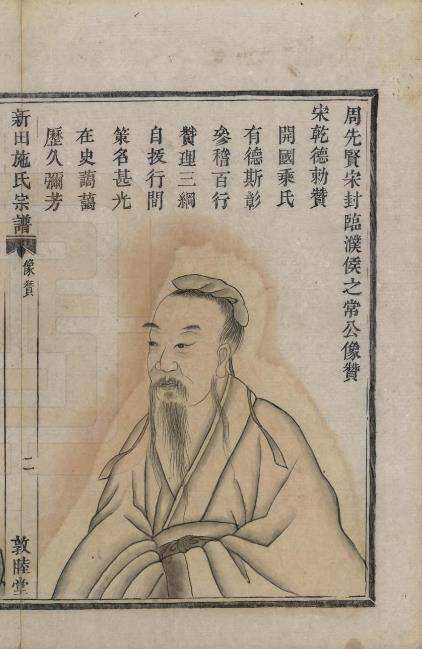 周先賢宋封臨濮侯之常公像贊
宋乾德勅贊
開國乘氏
有德斯彰
參稽百行
贊理三綱
自拔行間
策名甚光
在史藹藹
歷久彌芳
新田施氏宗譜
像贊
二
敦睦堂